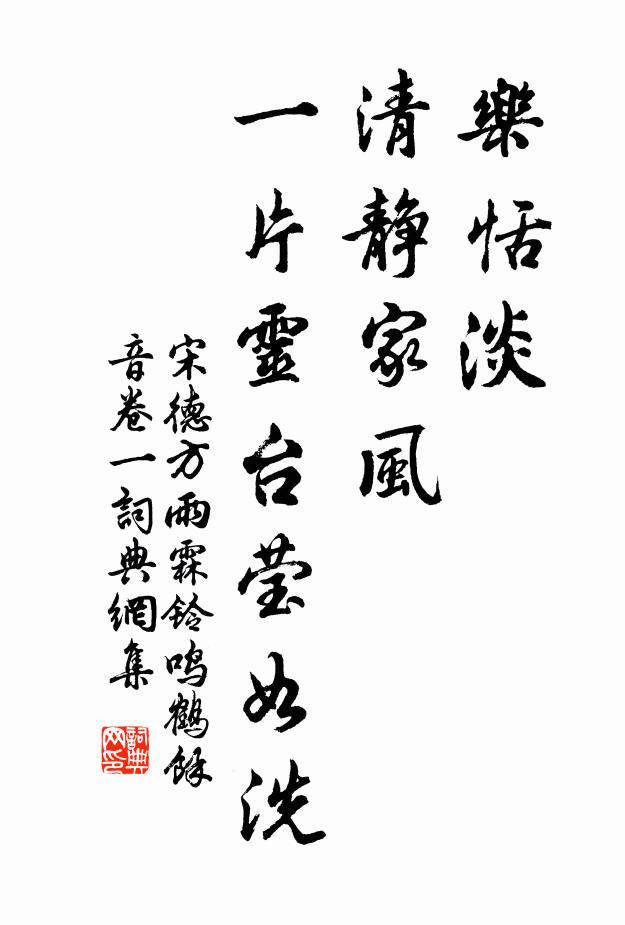 樂恬淡
清靜家風
一片靈台莹如洗
宋德方雨霖鈴鳴鶴餘
音卷一詞典網集
詞典
网印